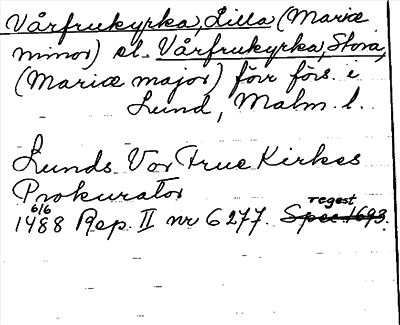 Vårfrukyrka, Lilla (Mariæ
minor) el. Vårfrukyrka, Stora,
(Mariæ major) förr förs. i
Lund, Malm. l.
Lunds Vor Frue Kirkes
Prokurator
6/6 regest
1488 Rep. II nr 6277. Spec. 1693.